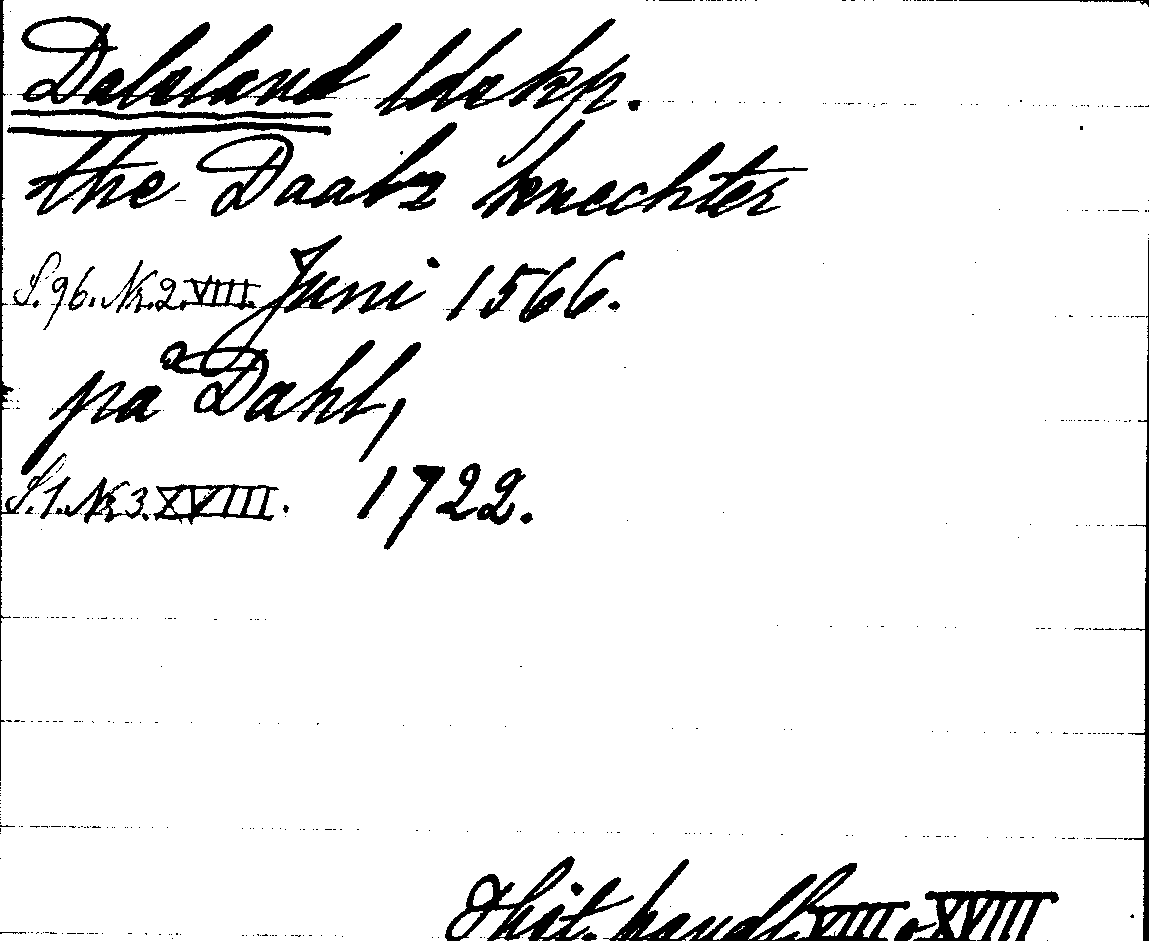 Dalsland ldskp.
the Daalz knechter
S. 96. Nr. 2. VIII. Juni 1566.
på Dahl,
S. 1. Nr 3. XVIII. 1722.
Hist. handl. VIII o XVIII